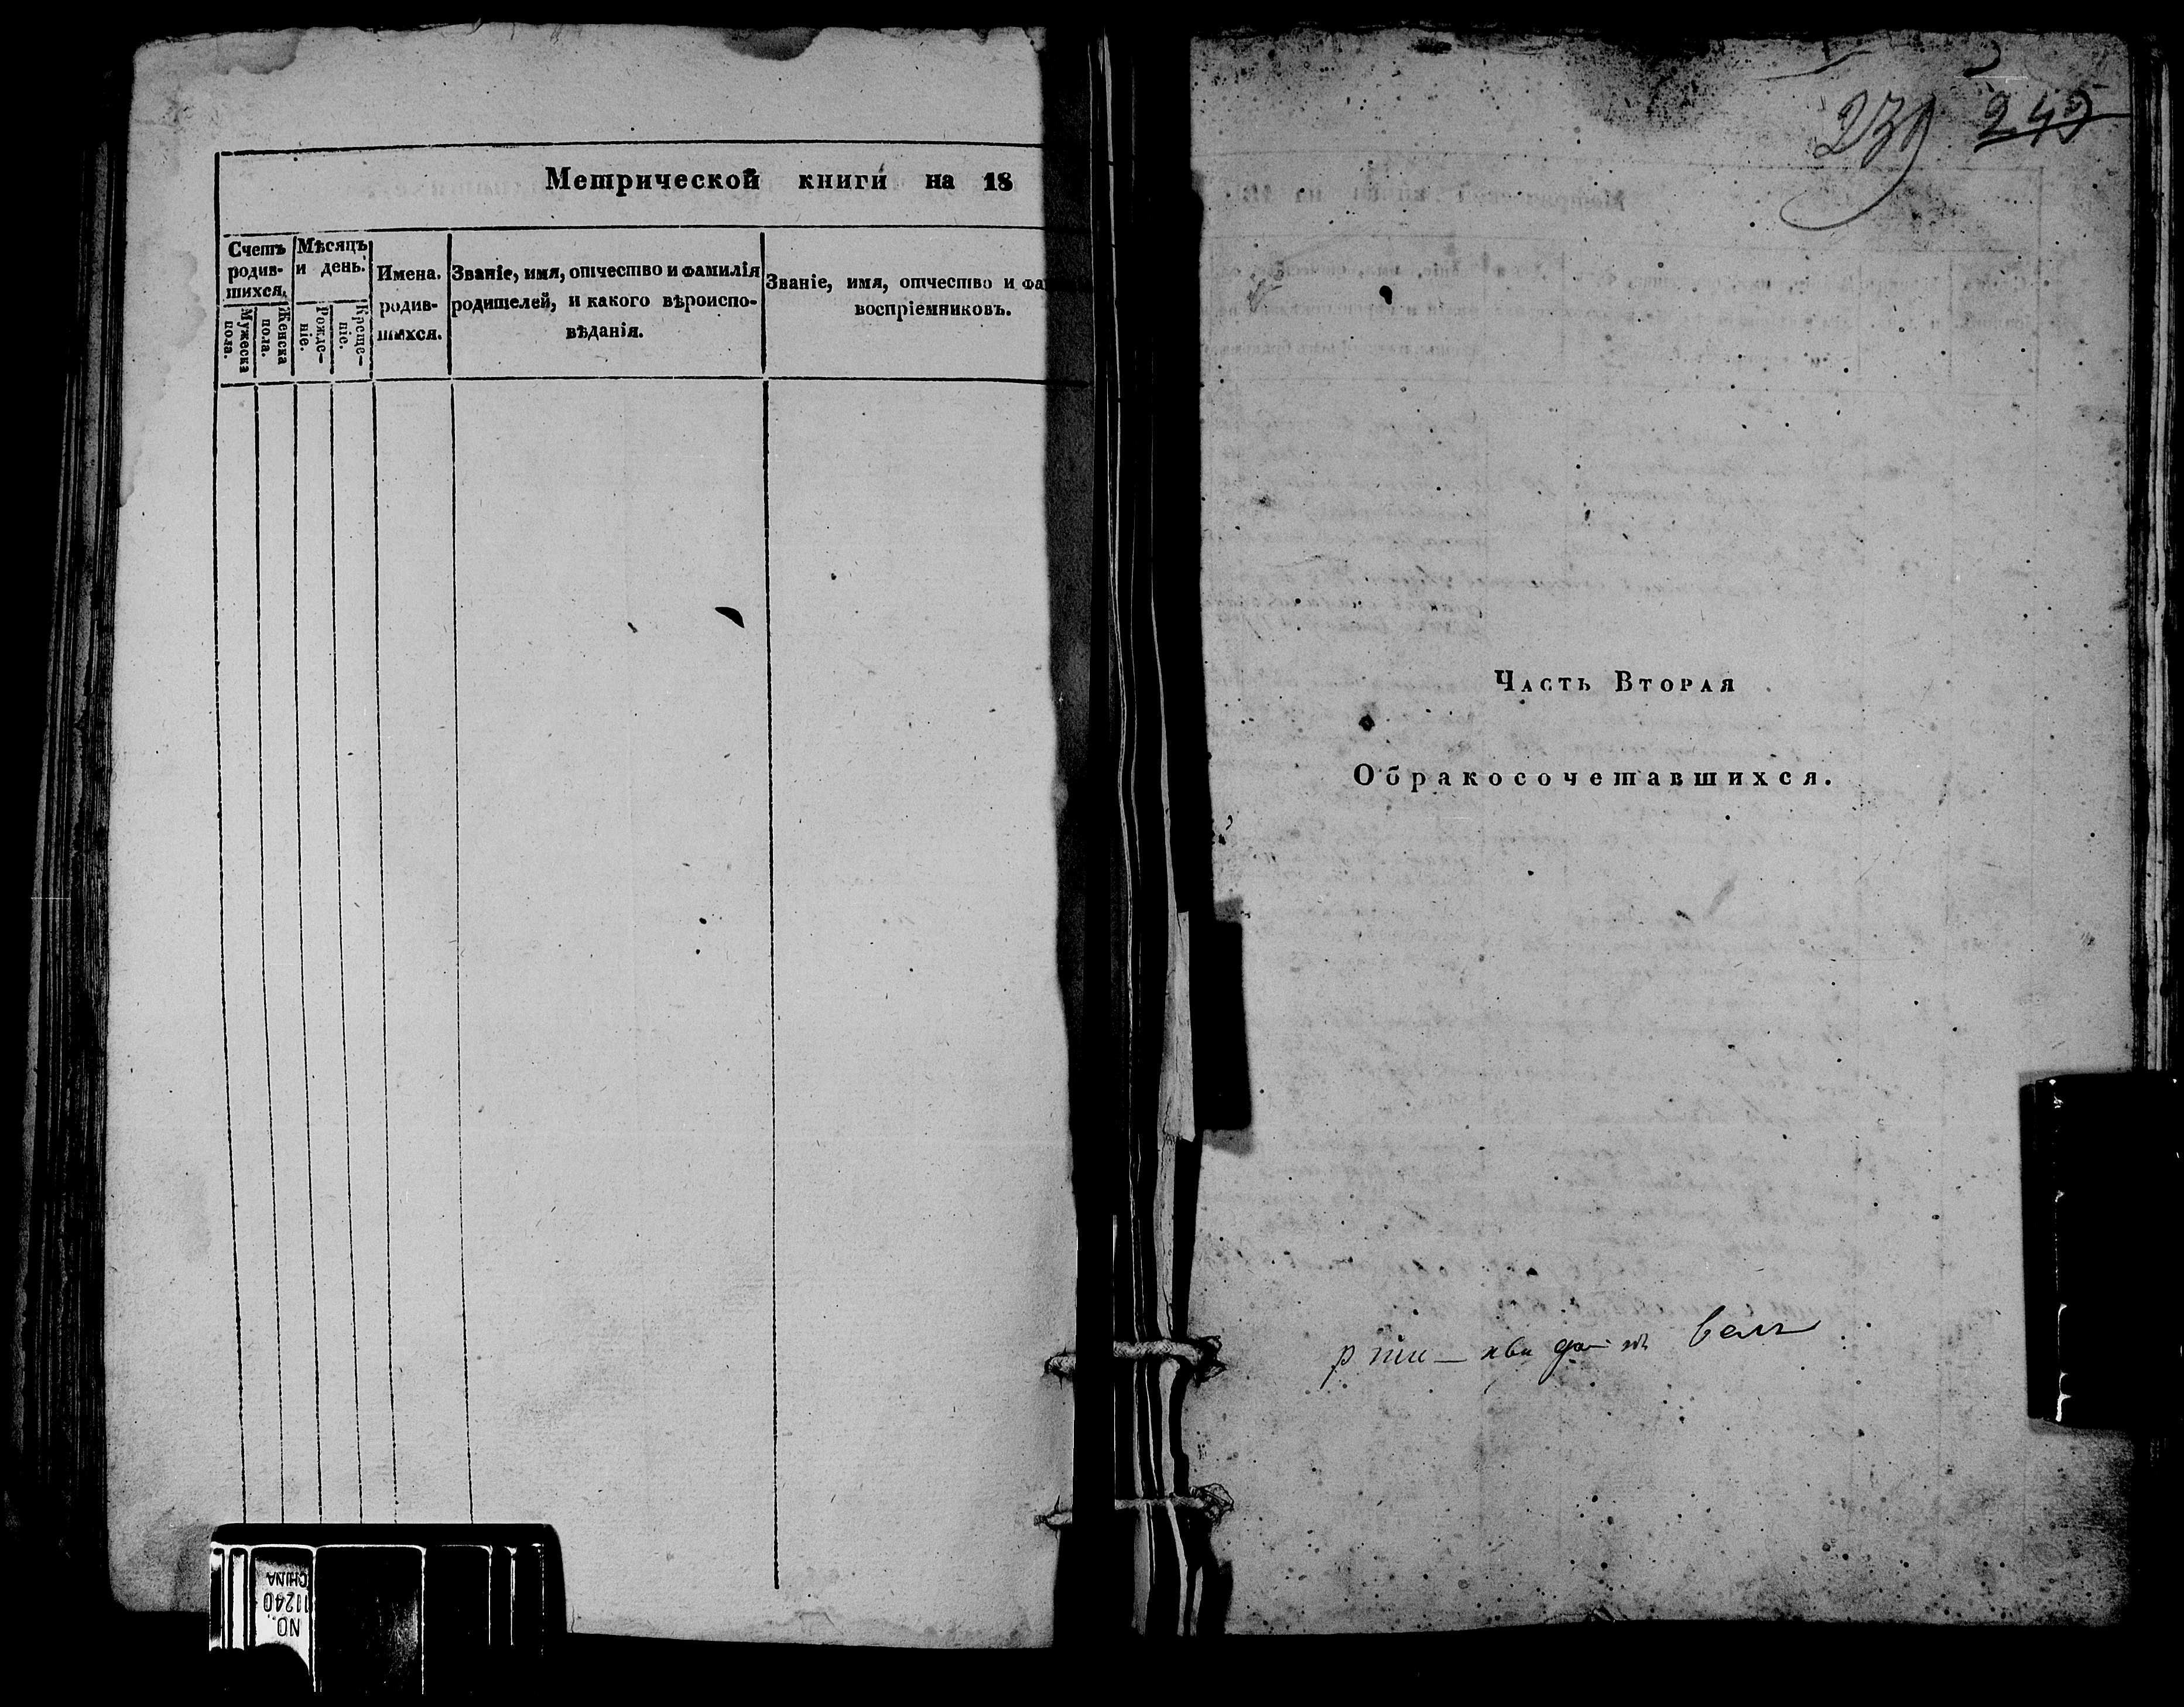 Метрической книги на 18
Счетъ родив- шихся.
Мужеска пола.
Женска пола.
Мѣсяцъ и день.
Рожде- ніе.
Креще- ніе.
Имена. родив- шихся.
Званіе, имя, отчество и фамилія
родителей, и какого вѣроиспо-
вѣданія.
Званіе, имя, отчество и фа
воспріемниковъ.
NO.
11240
CHINA
239 245
Часть Вторая
Обракосочетавшихся.